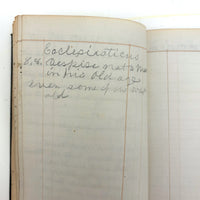 Ecclesiasticus
8.6. Despise not a man
in his old age
even some of us wax
old